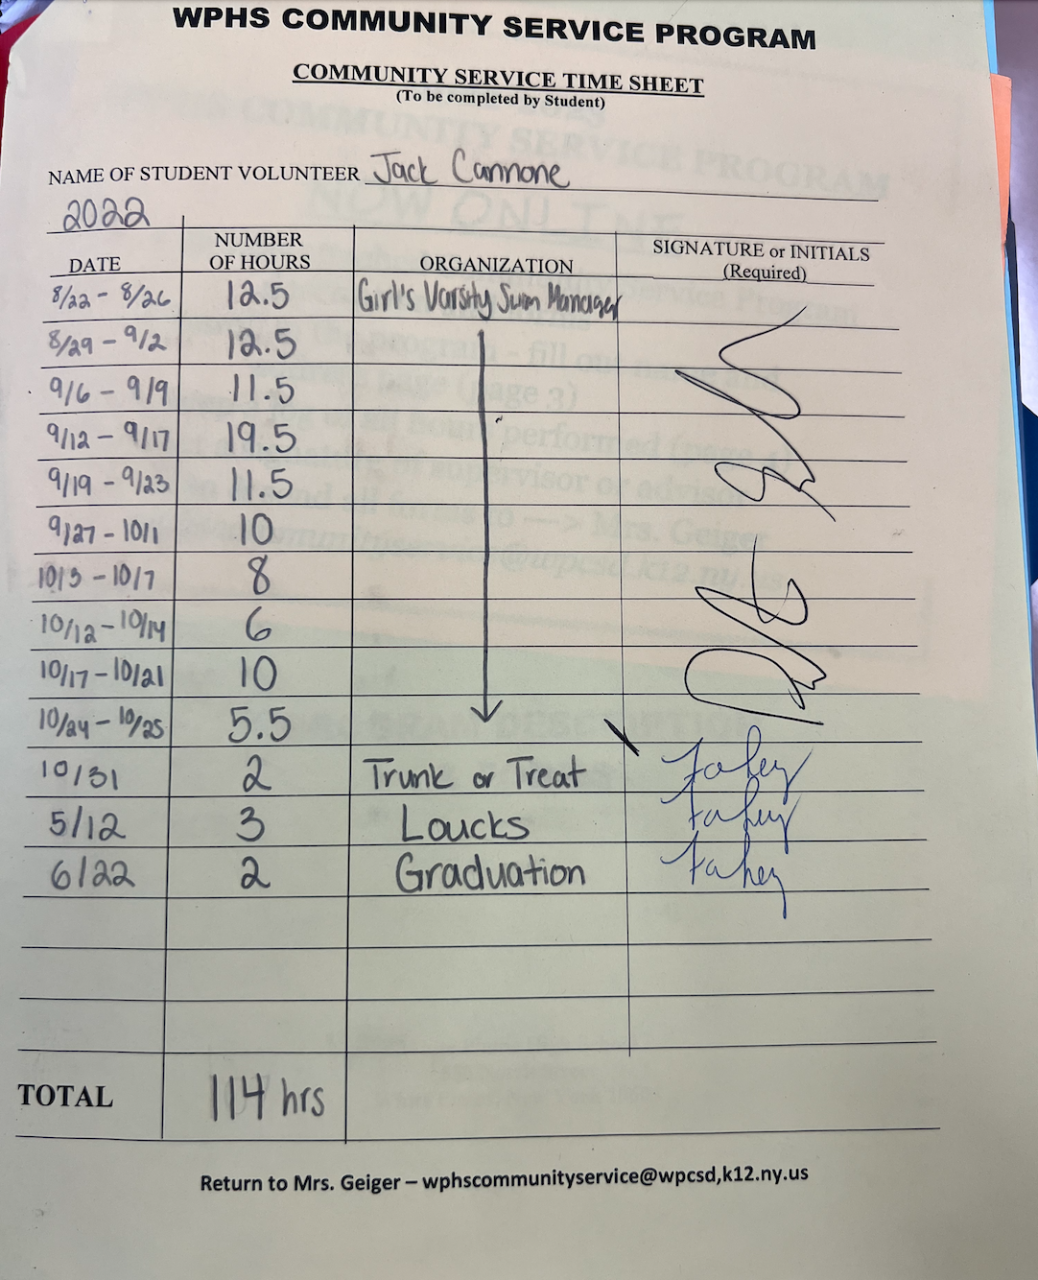 WPHS COMMUNITY SERVICE PROGRAM
COMMUNITY SERVICE TIME SHEET
(To be completed by Student)
NAME OF STUDENT VOLUNTEER Jack Cannone
2022
DATE NUMBER OF HOURS ORGANIZATION SIGNATURE or INITIALS (Required)
8/22 - 8/26 12.5 Girl's Varsity Swim Manager
8/29 - 9/2 12.5
9/6 - 9/9 11.5
9/12 - 9/17 19.5
9/19 - 9/23 11.5
9/27 - 10/1 10
10/3 - 10/7 8
10/12 - 10/14 6
10/17 - 10/21 10
10/24 - 10/25 5.5
10/31 2 Trunk or Treat Fahey
5/12 3 Loucks Fahey
6/22 2 Graduation Fahey
TOTAL 114 hrs
Return to Mrs. Geiger – wphscommunityservice@wpcsd,k12.ny.us